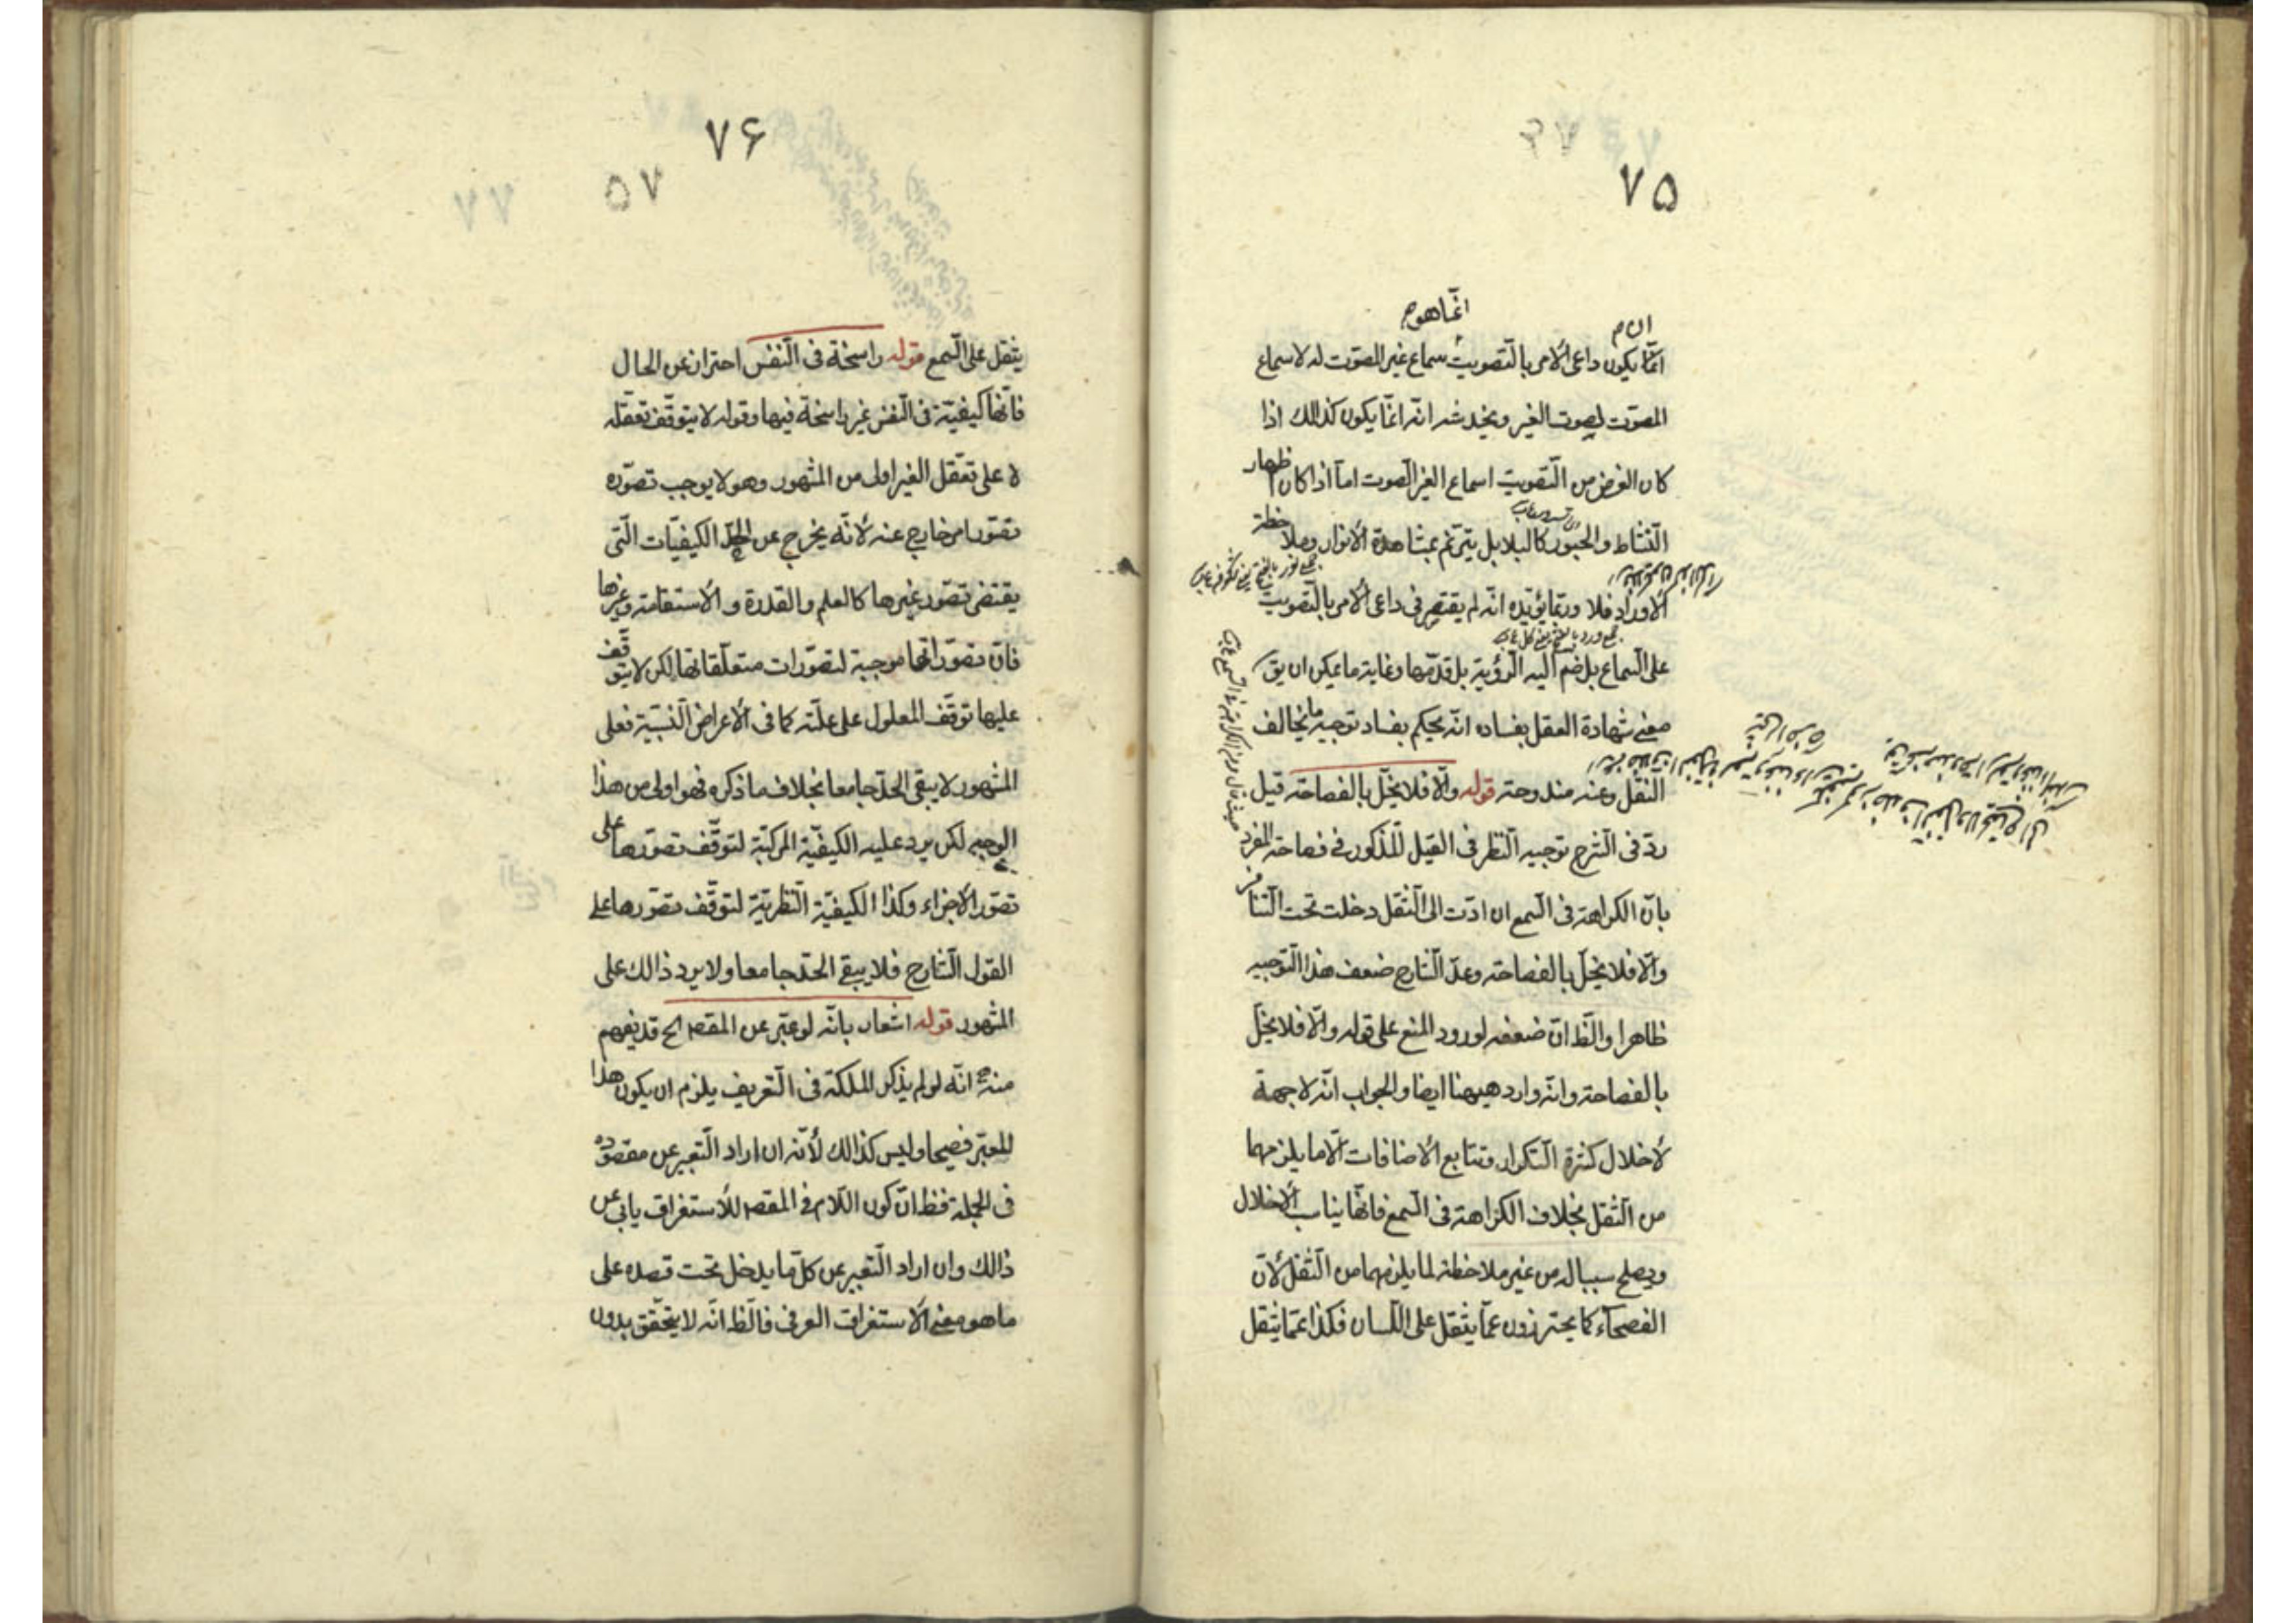 ۷۵
انما هو م
ان م
انّما يكون داعى الأمر بالتّصويت سماع غير المصوّت له لا سماع
المصوّت لصوت الغير ويخدشه انّه انّما يكون كذالك اذا
كان الغرض من التّصويت اسماع الغير الصّوت امّا اذا كان اظهار
النّشاط والحبور كالبلابل يترنّم بمشاهدة الأنوار وملاحظة
الأوراد فلا وربّما يؤيّده انّه لم يقتصر فى داعى الأمر بالتّصويت
على السّماع بل ضمّ اليه الرّؤية بل قدّمها وغاية ما يمكن ان يق
معنى شهادة العقل بفساده انّه يحكم بفساد توجيه ما يخالف
النّقل وعنه مندوحة قوله والّا فلا يخلّ بالفصاحة قيل
ردّ فى الشّرح توجيه النّظر فى القيل المذكور فى فصاحة المفرد
بانّ الكراهة فى السّمع ان ادّت الى الثّقل دخلت تحت التّنافر
والّا فلا يخلّ بالفصاحة وعدّ الشّارح ضعف هذا التّوجيه
ظاهرا والظّ انّ ضعفه لورود المنع على قوله والّا فلا يخلّ
بالفصاحة وانّه وارد هيهنا ايضا والجواب انّه لا جهة
لأخلال كثرة التّكرار وتتابع الأضافات الّا ما يلزمهما
من الثّقل بخلاف الكراهة فى السّمع فانّها يناسب الأخلال
ويصلح سببا له من غير ملاحظة لما يلزمهما من الثّقل لأنّ
الفصحآء كما يحترزون عمّا يثقل على اللّسان فكذا عمّا يثقل
۷۶
يثقل على السّمع قوله راسخة فى النّفس احتراز عن الحال
فانّها كيفيّة فى النّفس غير راسخة فيها وقوله لا يتوقّف تعقّله
لا على تعقّل الغير اولى من المشهور وهو لا يوجب تصوّره
تصوّر امر خارج عنه لأنّه يخرج عن الحدّ الكيفيّات الّتى
يقتضى تصوّر غيرها كالعلم والقدرة والأستقامة وغيرها
فانّ تصوّراتها موجبة لتصوّرات متعلّقاتها لكن لا يتوقّف
عليها توقّف المعلول على علّته كما فى الأعراض النّسبيّة فعلى
المشهور لا يبقى الحدّ جامعا بخلاف ما ذكره فهو اولى من هذا
الوجه لكن يرد عليه الكيفيّة المركّبة لتوقّف تصوّرها على
تصوّر الأجزاء وكذا الكيفيّة النّظريّة لتوقّف تصوّرها على
القول الشّارح فلا يبقى الحدّ جامعا ولا يرد ذالك على
المشهور قوله اشعار بانّه لو عبّر عن المقصم الخ قد يفهم
منه انّه لو لم يذكر الملكة فى التّعريف يلزم ان يكون هذا
المعبّر فصيحا وليس كذالك لأنّه ان اراد التّعبير عن مقصوده
فى الجملة فظ انّ كون اللّام فى المقصم للأستغراق يابى عن
ذالك وان اراد التّعبير عن كلّ ما يدخل تحت قصده على
ما هو معنى الأستغراق العرفى فالظّ انّه لا يتحقّق بدون